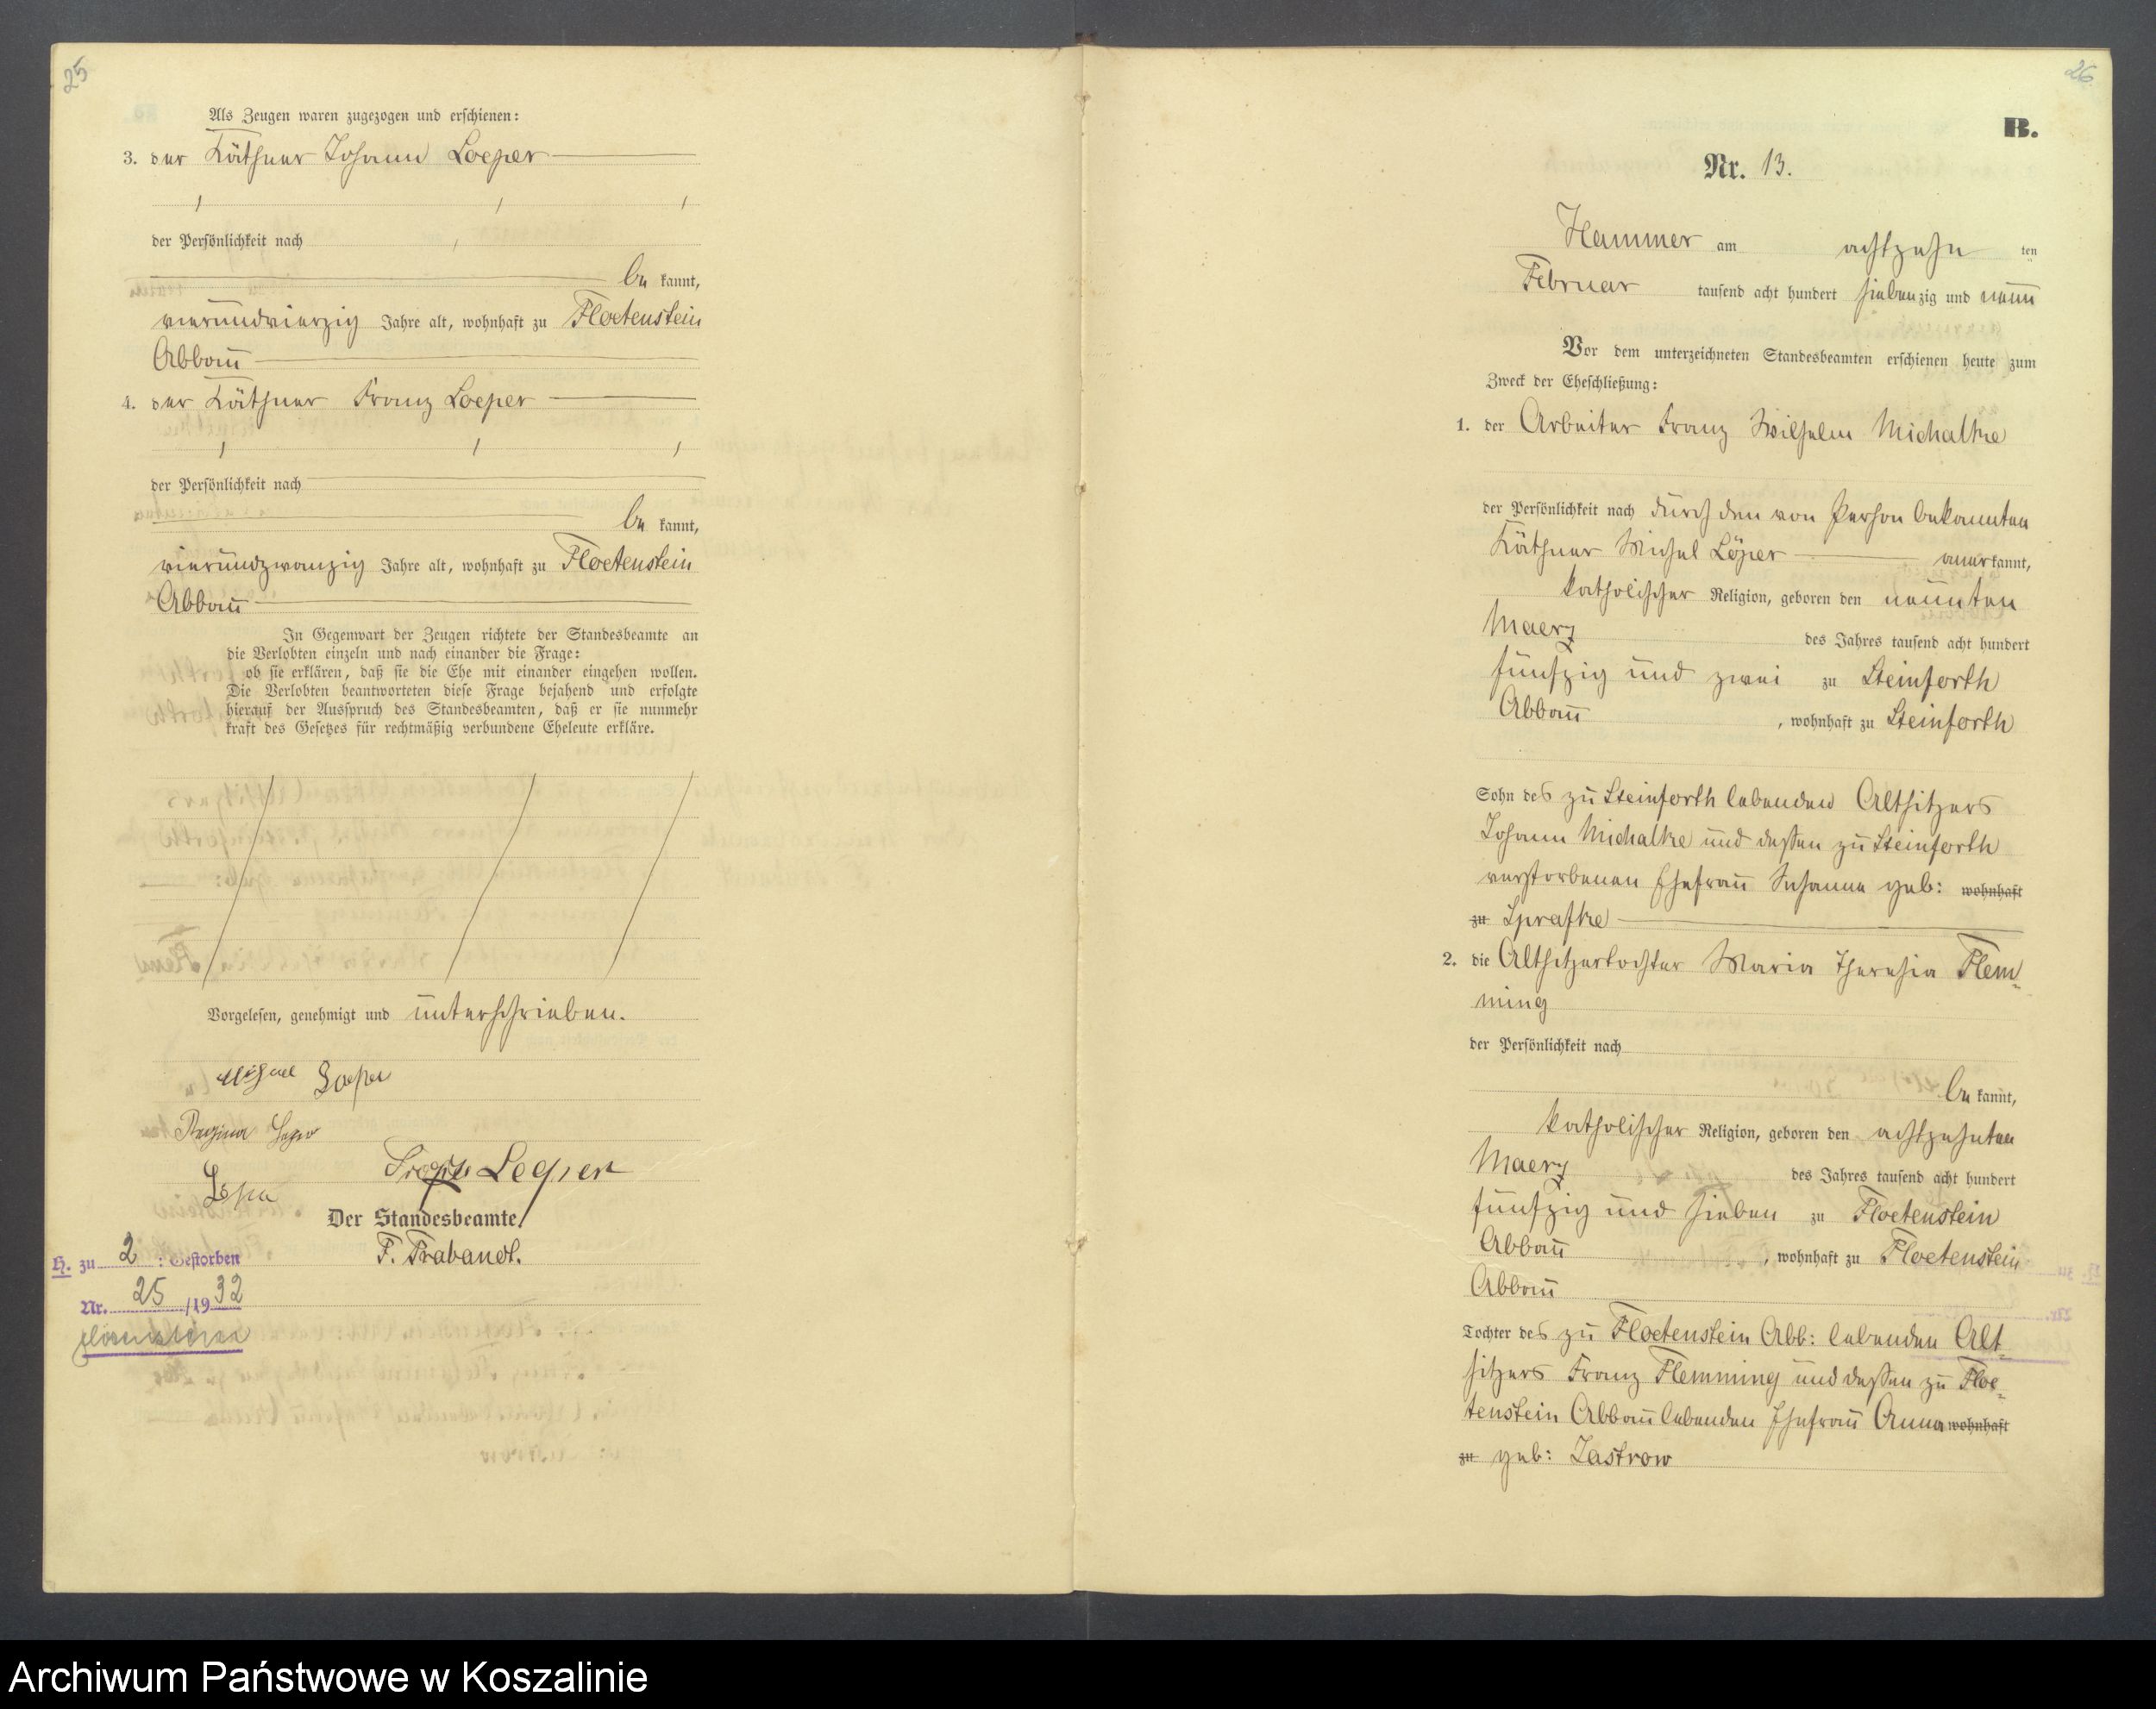 25
Als Zeugen waren zugezogen und erschienen:
3. der Käthner Johann Loeper
der Persönlichkeit nach
be kannt,
vierundvierzig Jahre alt, wohnhaft zu Floetenstein
Abbau
4. der Käthner Franz Loeper
der Persönlichkeit nach
be kannt,
vierundzwanzig Jahre alt, wohnhaft zu Floetenstein
Abbau
In Gegenwart der Zeugen richtete der Standesbeamte an
die Verlobten einzeln und nach einander die Frage:
ob sie erklären, daß sie die Ehe mit einander eingehen wollen.
Die Verlobten beantworteten diese Frage bejahend und erfolgte
hierauf der Ausspruch des Standesbeamten, daß er sie nunmehr
kraft des Gesetzes für rechtmäßig verbundene Eheleute erkläre.
Vorgelesen, genehmigt und unterschrieben.
Michael Loeper
Regina
Leper
Der Standesbeamte.
F. Prabandt.
H. zu 2 : Gestorben
Nr. 25 /19 32
26
B.
Nr. 13.
Hammer am achtzehn ten
Februar tausend acht hundert siebenzig und neun
Vor dem unterzeichneten Standesbeamten erschienen heute zum
Zweck der Eheschließung:
1. der Arbeiter Franz Wilhelm Michalke
der Persönlichkeit nach durch den von Person bekannten
Käthner Michel Löper anerkannt,
katholischer Religion, geboren den neunten
Maerz des Jahres tausend acht hundert
fünfzig und zwei zu Steinforth
Abbau , wohnhaft zu Steinforth
Sohn des zu Steinforth lebenden Altsitzers
Johann Michalke und dessen zu Steinforth
verstorbenen Ehefrau Susanna geb: wohnhaft
zu Spratke
2. die Altsitzertochter Maria Theresia Flem-
ming
der Persönlichkeit nach
be kannt,
katholischer Religion, geboren den achtzehnten
Maerz des Jahres tausend acht hundert
fünfzig und sieben zu Floetenstein
Abbau , wohnhaft zu Floetenstein
Abbau
Tochter des zu Floetenstein Abb: lebenden Alt-
sitzers Franz Flemming und dessen zu Floe-
tenstein Abbau lebenden Ehefrau Anna wohnhaft
zu geb: Zastrow
Archiwum Państwowe w Koszalinie